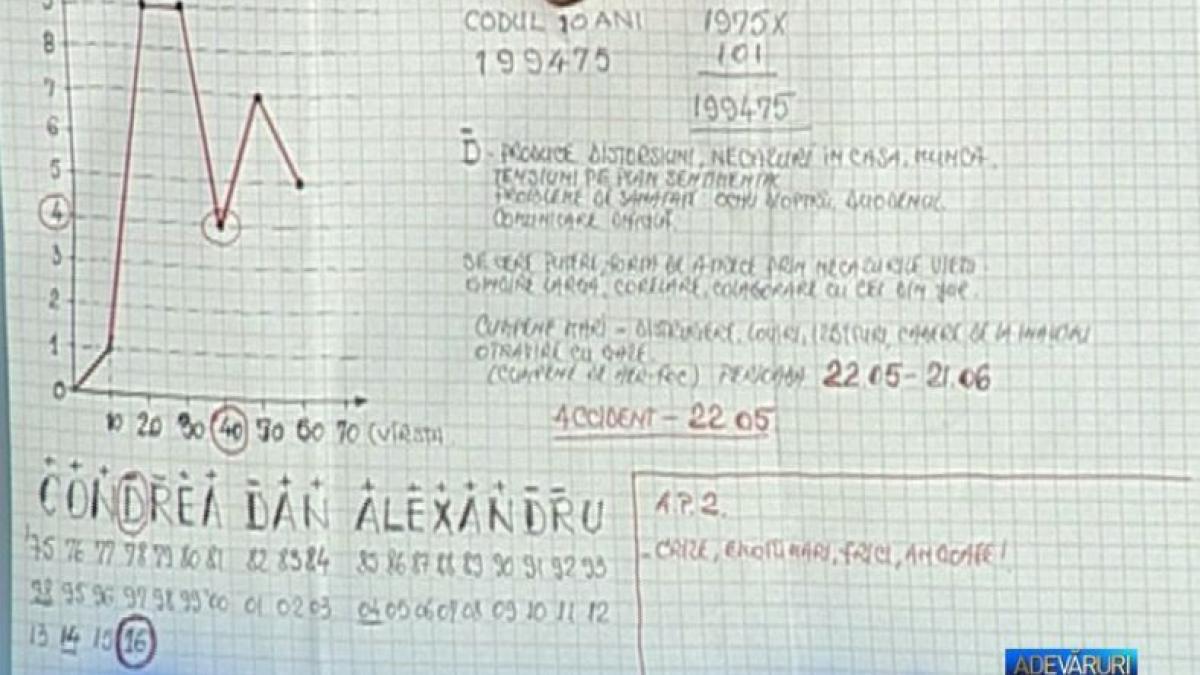 CODUL 10 ANI 1975X
199475 101
199475
9
8
7
6
5
4
3
2
1
0
10 20 30 40 50 60 70 (VÎRSTA)
D - PRODUCE DISTORSIUNI, NECAZURI IN CASA, MUNCA.
TENSIUNI PE PLAN SENTIMENTAL
PROBLEME DE SANATATE DUODENUL
COMUNICARE DIFICILA.
SE CERE PUTERE, DE A TRECE PRIN NECAZURILE VIETII.
GINDIRE LARGA, CORELARE, COLABORARE CU CEI DIN JUR.
CUMPENE MARI - DISTRUGERE, LOVIRI, IZBITURI, CADERE DE LA INALTIMI
OTRAVIRE CU GAZE.
(CUMPENE DE AER-FOC) PERIOADA 22.05-21.06
ACCIDENT - 22 05
CONDREA DAN ALEXANDRU
75 76 77 78 79 80 81 82 83 84 85 86 87 88 89 90 91 92 93
95 96 97 98 99 00 01 02 03 04 05 06 07 08 09 10 11 12
13 14 15 16
A.P.2.
- CRIZE, EMOTII MARI, FRICI, ANGOASE!
ADEVĂRURI